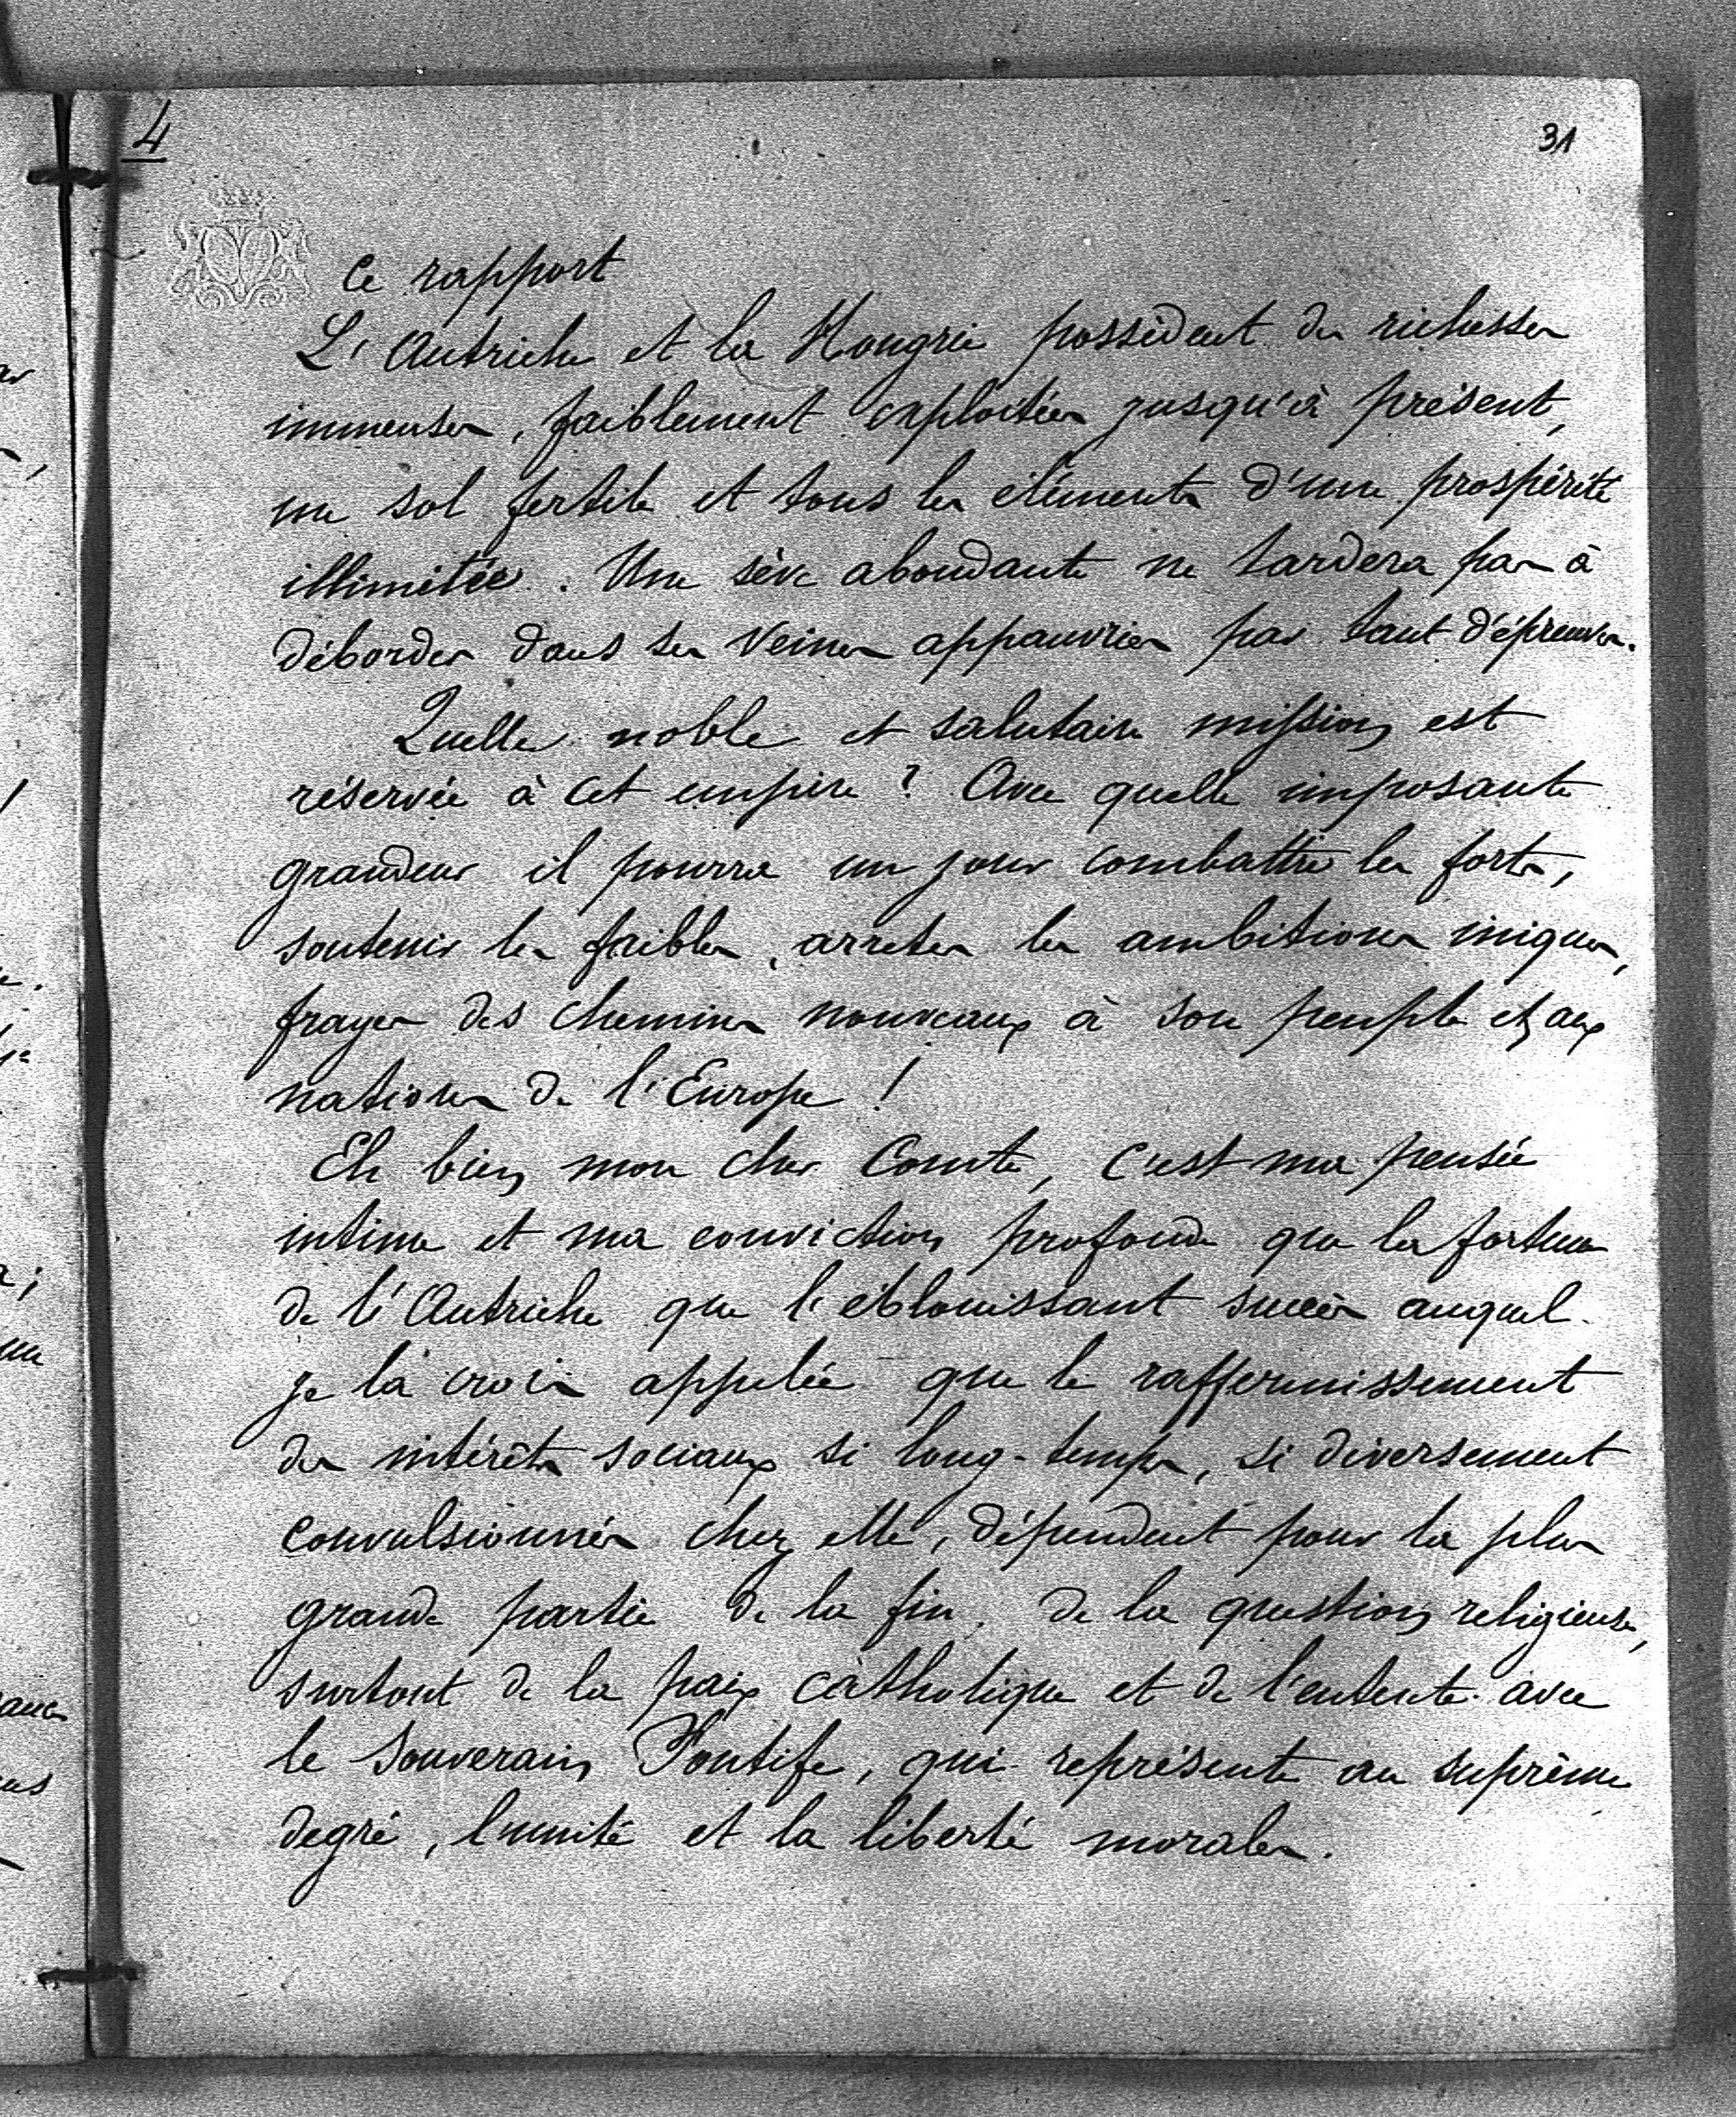 4
31
ce rapport
L'Autriche et la Hongrie possèdent des richesses
immenses, faiblement exploitées jusqu'à présent,
un sol fertile et tous les éléments d'une prospérité
illimitée. Une sève abondante ne tardera pas à
déborder dans ses veines appauvries par tant d'épreuves.
Quelle noble et salutaire mission est
réservée à cet empire? Avec quelle imposante
grandeur il pourra un jour combattre les forts,
soutenir les faibles, arreter les ambitions iniques,
frayer des chemins nouveaux à son peuple et aux
nations de l'Europe!
Eh bien mon cher Comte, c'est ma pensée
intime et ma conviction profonde que la fortune
de l'Autriche que l'éblouissant succès auquel
je la crois appelée que le raffermissement
des intérêts sociaux si long-temps, si diversement
convulsionnés chez elle, dépendent pour la plus
grande partie de la fin de la question religieuse,
surtout de la paix catholique et de l'entente avec
le Souverain Pontife, qui représente au suprême
degré, l'unité et la liberté morales.